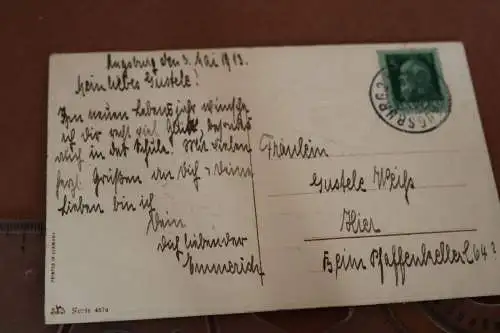 Augsburg den 3. Mai 1913.
Mein liebes Gustele!
Im neuen Lebensjahr wünsche
ich Dir recht viel Glück, besonders
auch in der Schule. Mit vielen
herzl. Grüßen an Dich & Deine
Lieben bin ich
Dein
Dich liebender
Emmerich
Fräulein
Gustele Weiß
Hier
Beim Pfaffenkeller C 64
AUGSBURG 2
PRINTED IN GERMANY
Serie 487